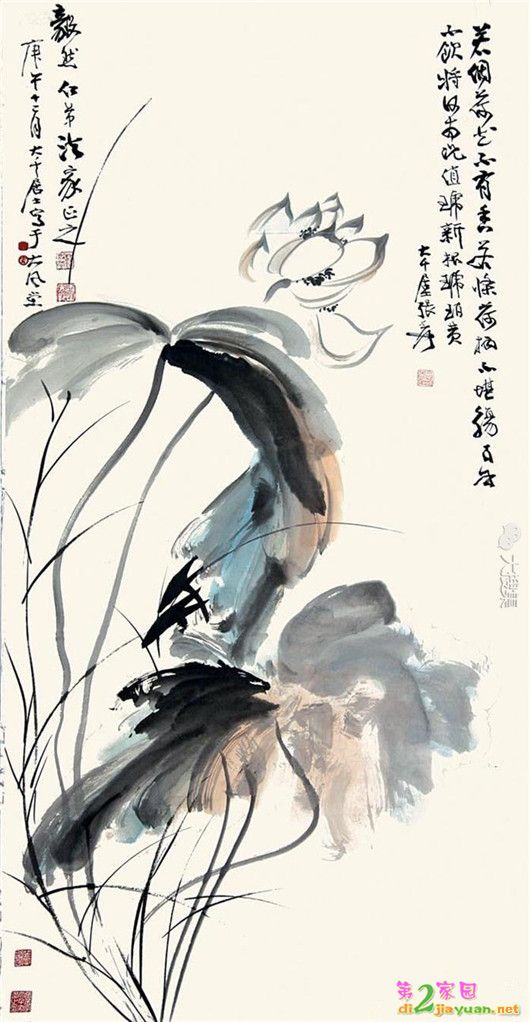 若個荷花不有香若條荷柄不堪觴百年
不飲將何況值新琥珀黄
大千居張爰
毅然仁弟法家正之
庚午十二月大千居士寫于大风堂
第2家园
di2jiayuan.net